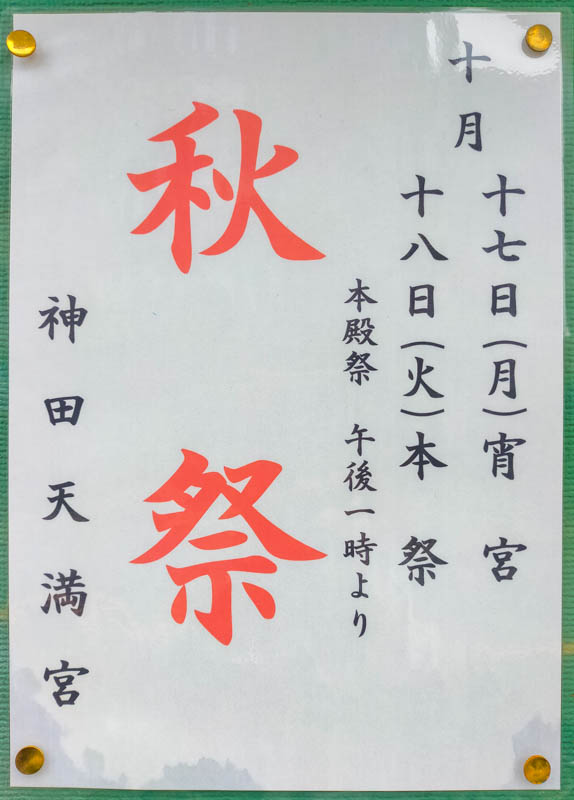 十月
十七日(月)宵宮
十八日(火)本祭
本殿祭 午後一時より
秋祭
神田天満宮